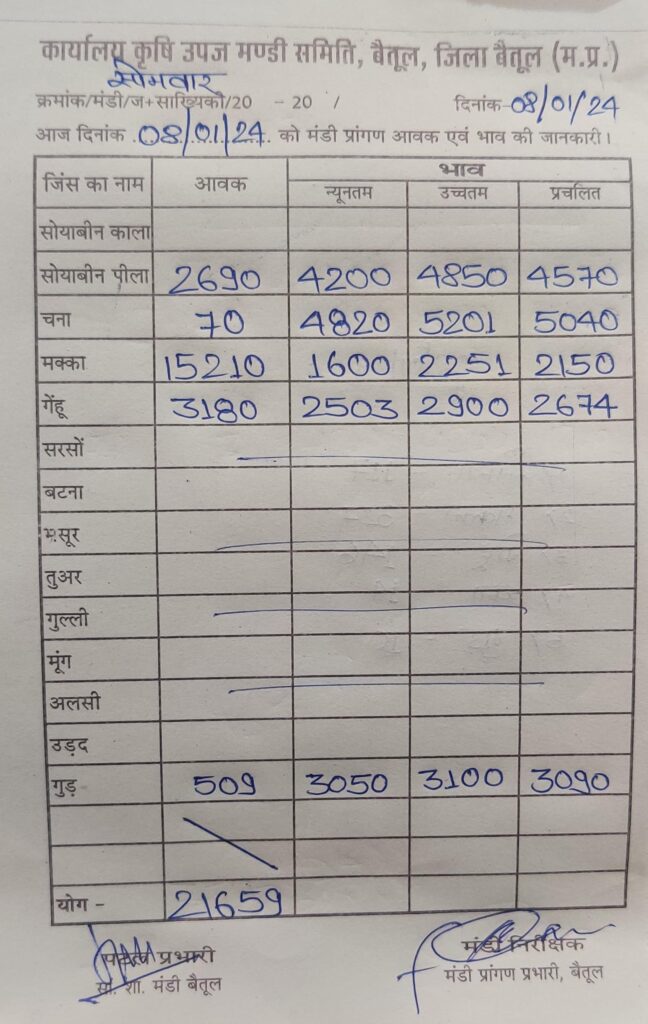 कार्यालय कृषि उपज मण्डी समिति, बैतूल, जिला बैतूल (म.प्र.)
सोमवार
क्रमांक/मंडी/ज+साख्यिकी/20 - 20 / दिनांक-08/01/24
आज दिनांक .08/01/24. को मंडी प्रांगण आवक एवं भाव की जानकारी।
जिंस का नाम आवक भाव
न्यूनतम उच्चतम प्रचलित
सोयाबीन काला
सोयाबीन पीला 2690 4200 4850 4570
चना 70 4820 5201 5040
मक्का 15210 1600 2251 2150
गेंहू 3180 2503 2900 2674
सरसों
बटना
मसूर
तुअर
गुल्ली
मूंग
अलसी
उड़द
गुड़ 509 3050 3100 3090
योग - 21659
प्रभारी मंडी निरीक्षक
सां. शा. मंडी बैतूल मंडी प्रांगण प्रभारी, बैतूल